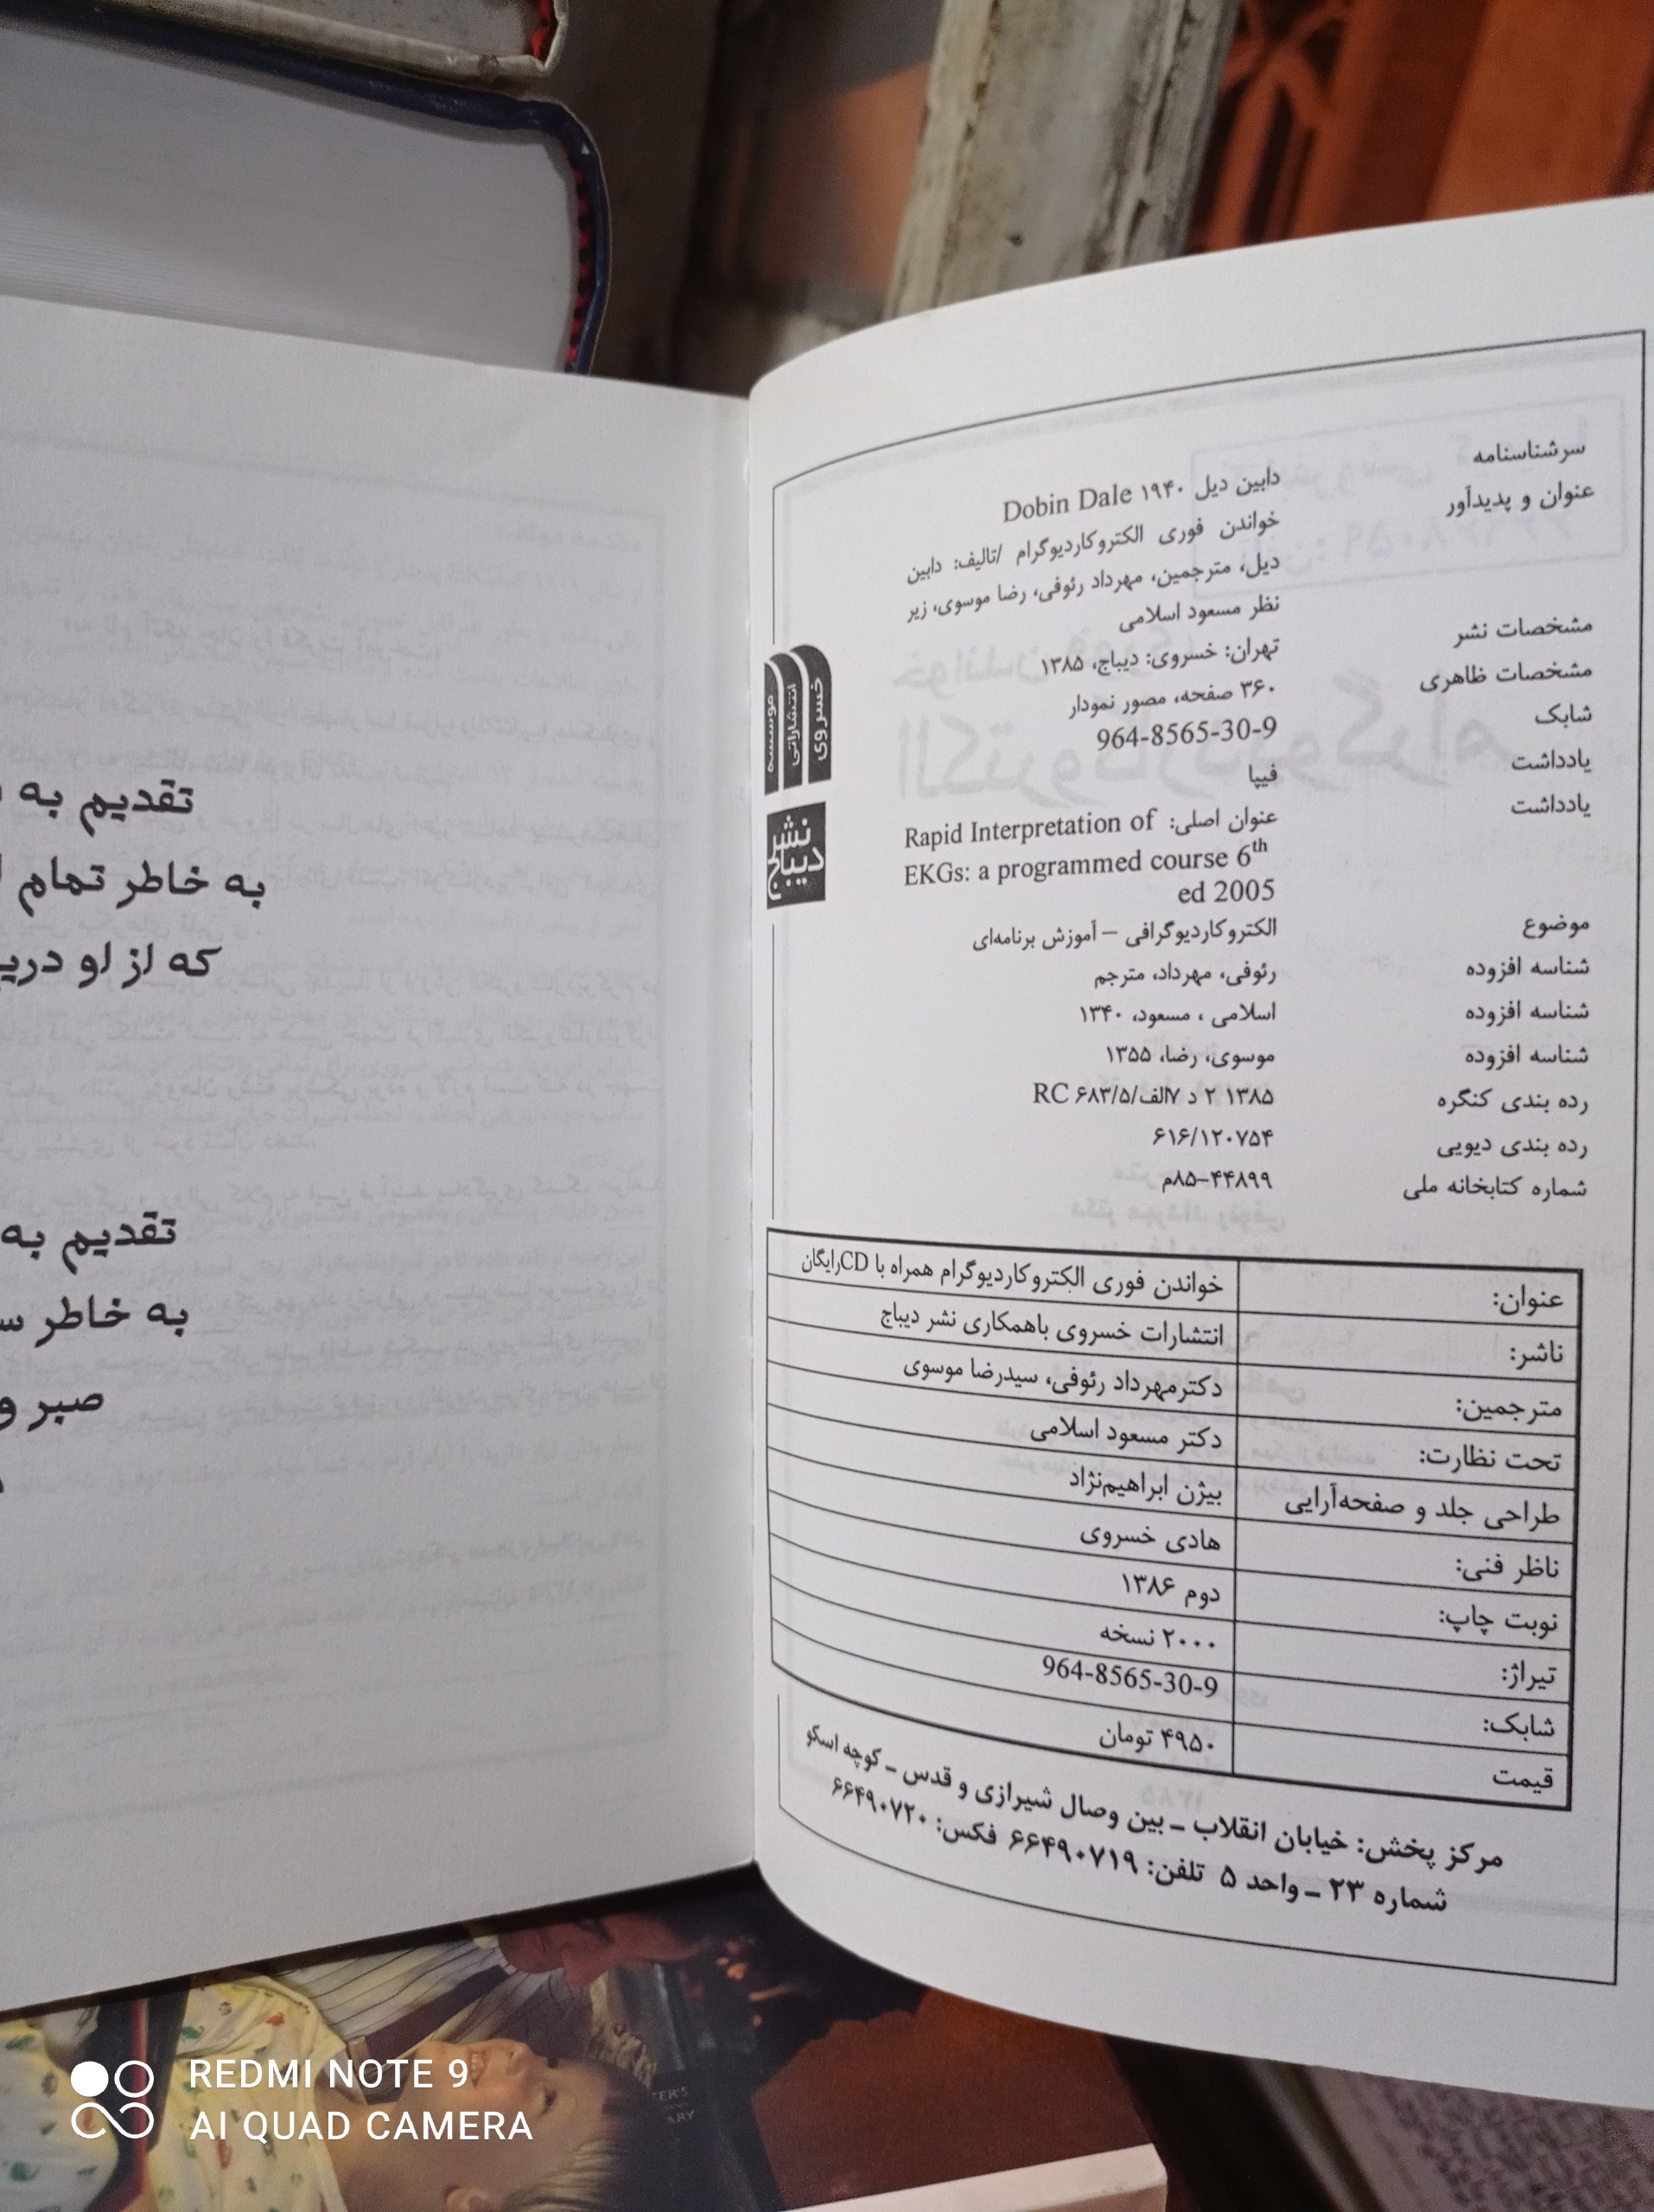 سرشناسنامه دابین دیل ۱۹۴۰ Dobin Dale
عنوان و پدیدآور خواندن فوری الکتروکاردیوگرام /تالیف: دابین
دیل، مترجمین، مهرداد رئوفی، رضا موسوی، زیر
نظر مسعود اسلامی
مشخصات نشر تهران: خسروی: دیباج، ۱۳۸۵
مشخصات ظاهری ۳۶۰ صفحه، مصور نمودار
شابک 964-8565-30-9
یادداشت فیپا
یادداشت عنوان اصلی: Rapid Interpretation of
EKGs: a programmed course 6th
ed 2005
موضوع الکتروکاردیوگرافی – آموزش برنامه‌ای
شناسه افزوده رئوفی، مهرداد، مترجم
شناسه افزوده اسلامی ، مسعود، ۱۳۴۰
شناسه افزوده موسوی، رضا، ۱۳۵۵
رده بندی کنگره ۱۳۸۵ ۲ د ۷الف/۶۸۳/۵ RC
رده بندی دیویی ۶۱۶/۱۲۰۷۵۴
شماره کتابخانه ملی ۴۴۸۹۹–۸۵م
موسسه
انتشاراتی
خسروی
نشر
دیباج
عنوان: خواندن فوری الکتروکاردیوگرام همراه با CDرایگان
ناشر: انتشارات خسروی باهمکاری نشر دیباج
مترجمین: دکترمهرداد رئوفی، سیدرضا موسوی
تحت نظارت: دکتر مسعود اسلامی
طراحی جلد و صفحه‌آرایی بیژن ابراهیم‌نژاد
ناظر فنی: هادی خسروی
نوبت چاپ: دوم ۱۳۸۶
تیراژ: ۲۰۰۰ نسخه
شابک: 964-8565-30-9
قیمت ۴۹۵۰ تومان
مرکز پخش: خیابان انقلاب ـ بین وصال شیرازی و قدس ـ کوچه اسکو
شماره ۲۳ ـ واحد ۵ تلفن: ۶۶۴۹۰۷۱۹ فکس: ۶۶۴۹۰۷۲۰
تقدیم به
به خاطر تمام
که از او
تقدیم به
به خاطر
صبر و
REDMI NOTE 9
AI QUAD CAMERA